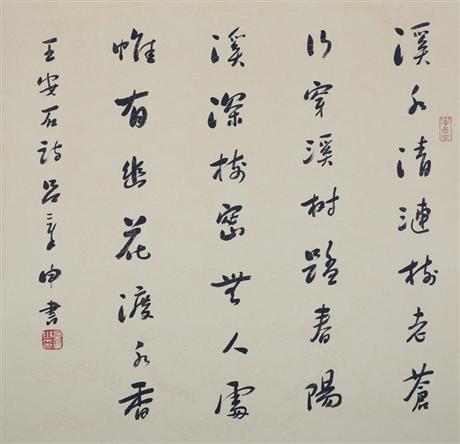 溪水清漣樹老蒼
行穿溪樹踏春陽
溪深樹密無人處
惟有幽花渡水香
王安石詩呂章申書